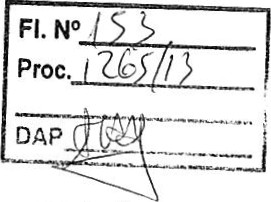 Fl. Nº 153
Proc. 1265/13
DAP